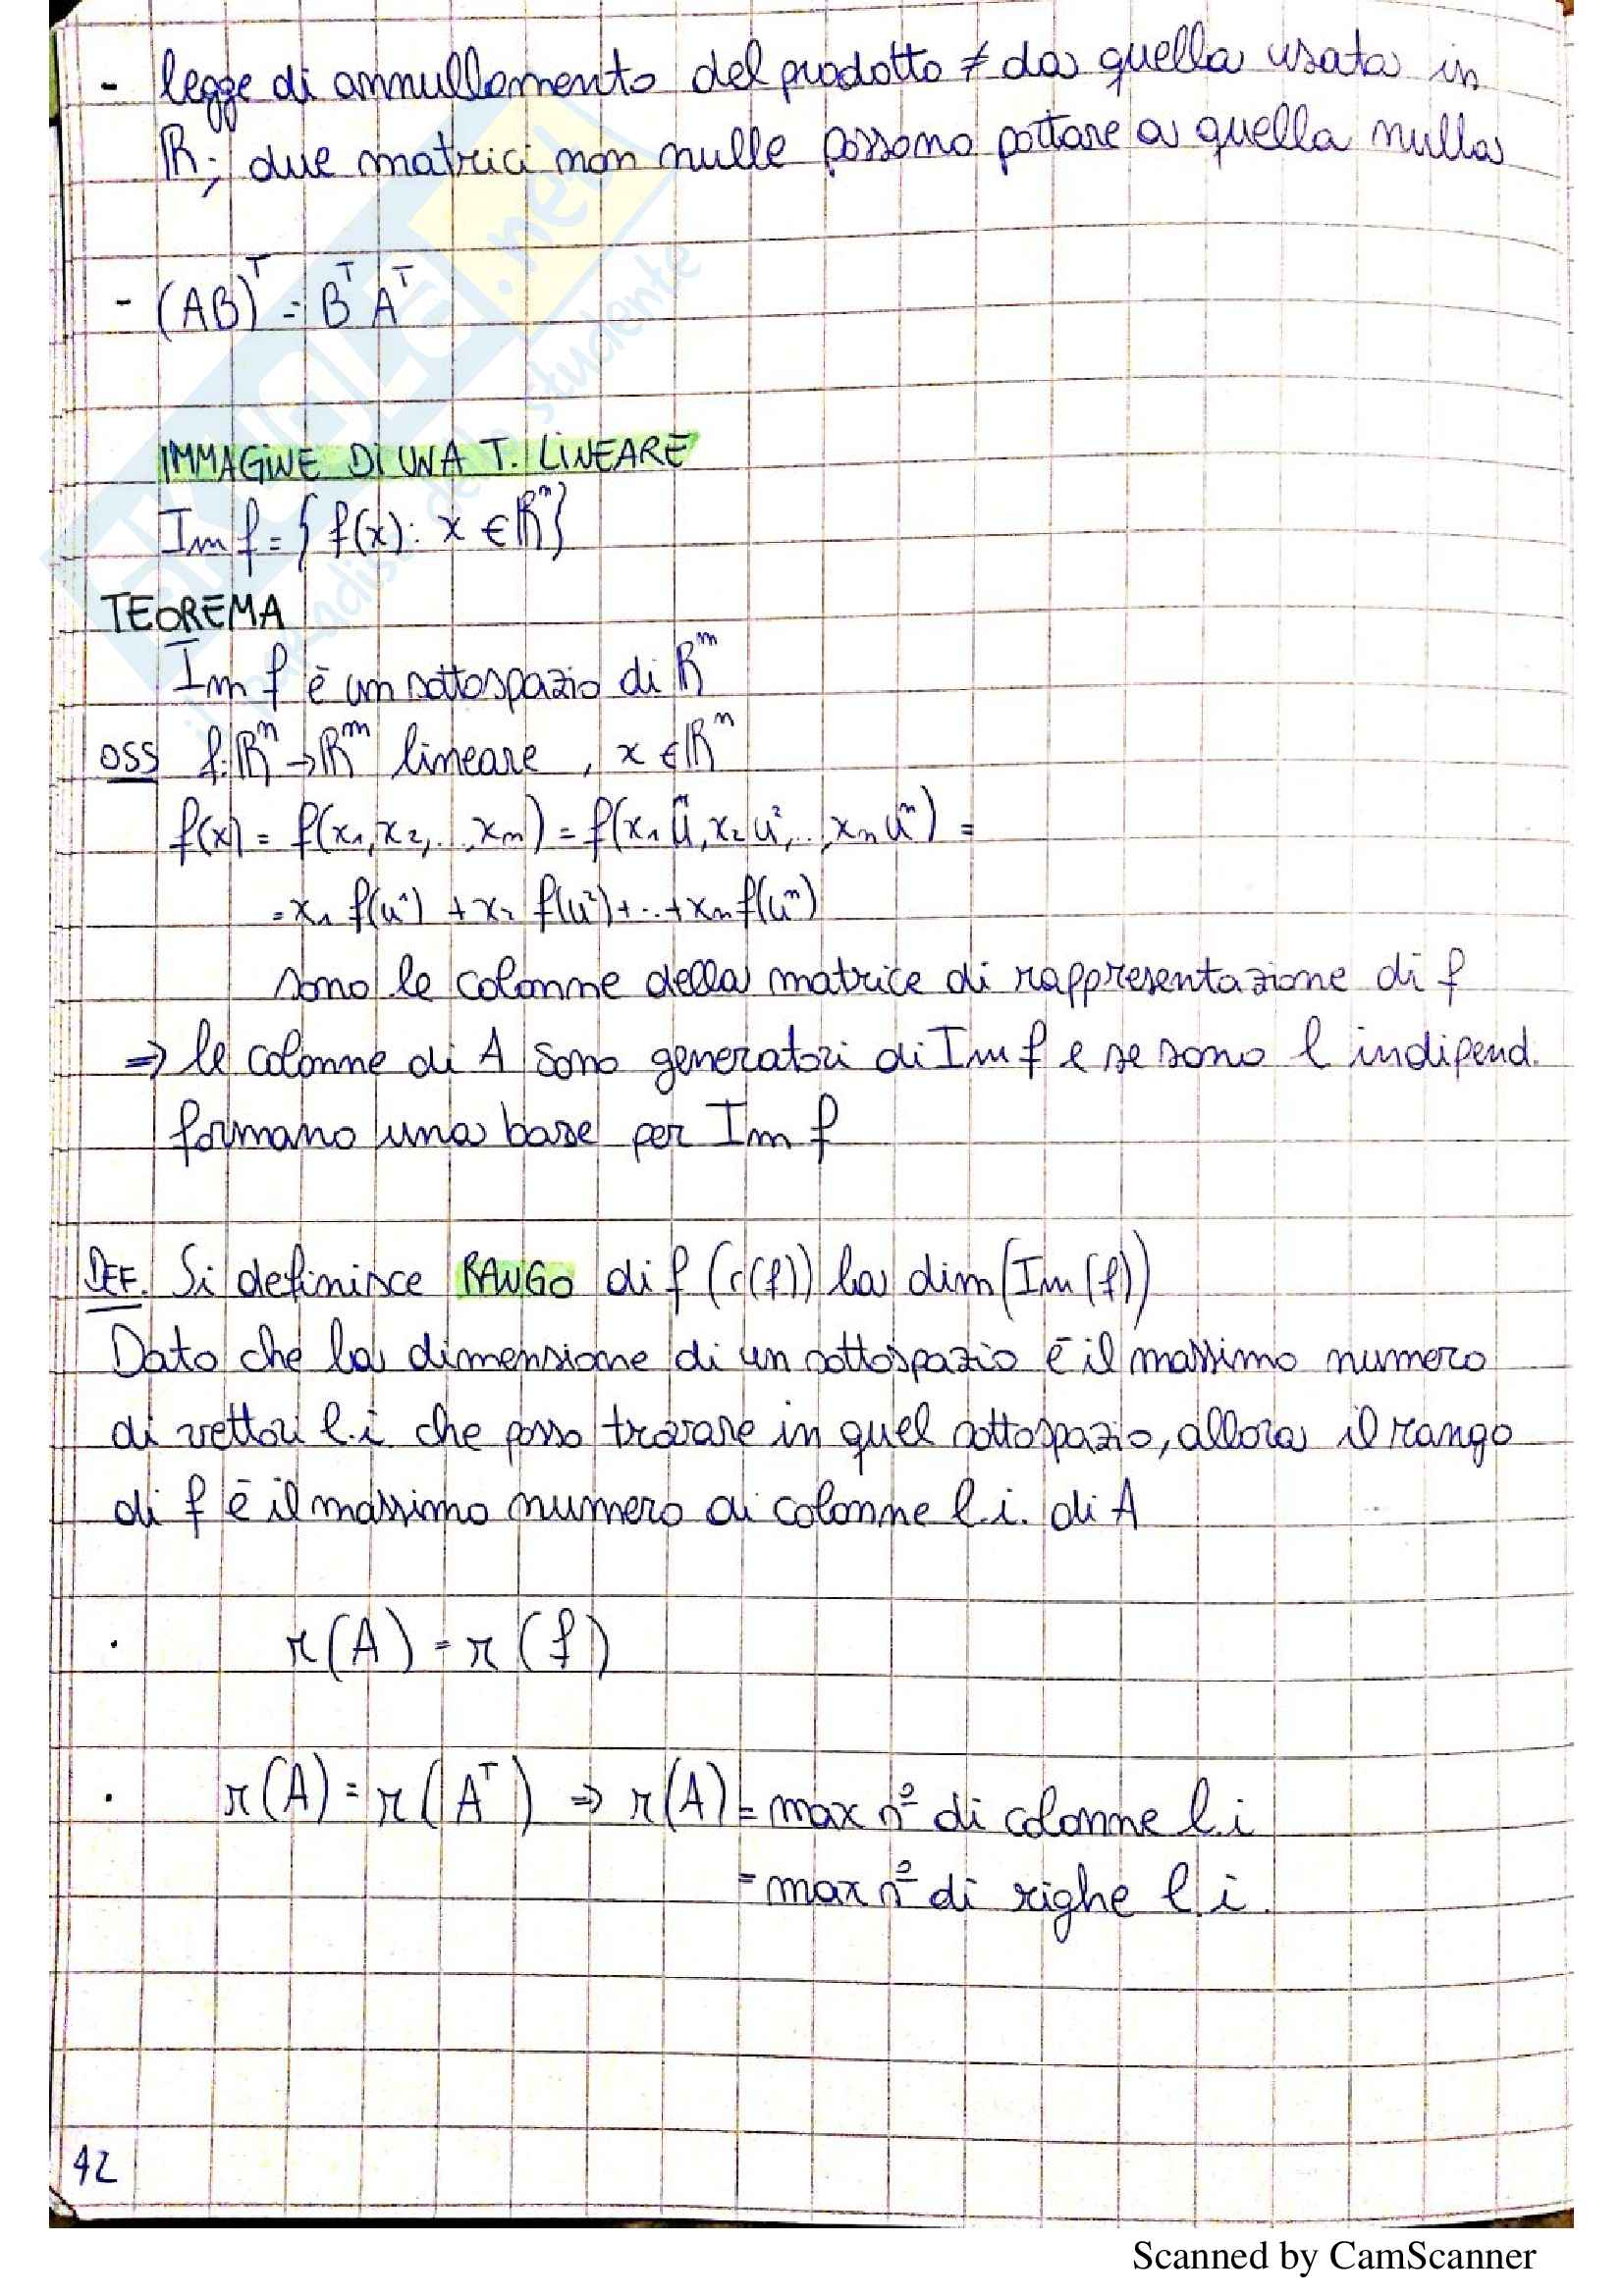 - legge di annullamento del prodotto ≠ da quella usata in
ℝ; due matrici non nulle possono portare a quella nulla
- (AB)ᵀ = Bᵀ Aᵀ
IMMAGINE DI UNA T. LINEARE
Im f = { f(x) : x ∈ ℝⁿ}
TEOREMA
Im f è un sottospazio di ℝᵐ
OSS f: ℝⁿ → ℝᵐ lineare , x ∈ ℝⁿ
f(x) = f(x₁, x₂, ..., xₙ) = f(x₁ u¹, x₂ u², ..., xₙ uⁿ) =
= x₁ f(u¹) + x₂ f(u²) + ... + xₙ f(uⁿ)
sono le colonne della matrice di rappresentazione di f
⇒ le colonne di A sono generatori di Im f e se sono l indipend.
formano una base per Im f
DEF. Si definisce RANGO di f (r(f)) la dim(Im(f))
Dato che la dimensione di un sottospazio è il massimo numero
di vettori l.i. che posso trovare in quel sottospazio, allora il rango
di f è il massimo numero di colonne l.i. di A
· r(A) = r(f)
· r(A) = r(Aᵀ) ⇒ r(A) = max n° di colonne l.i
= max n° di righe l i.
42
Scanned by CamScanner
skuola.net
il paradiso dello studente